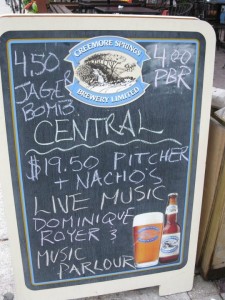 CREEMORE SPRINGS
BREWERY LIMITED
4.50 4.00
JAGER PBR
BOMB.
CENTRAL
$19.50 PITCHER
+ NACHO'S
LIVE MUSIC
DOMINIQUE
ROYER 3
MUSIC
PARLOUR